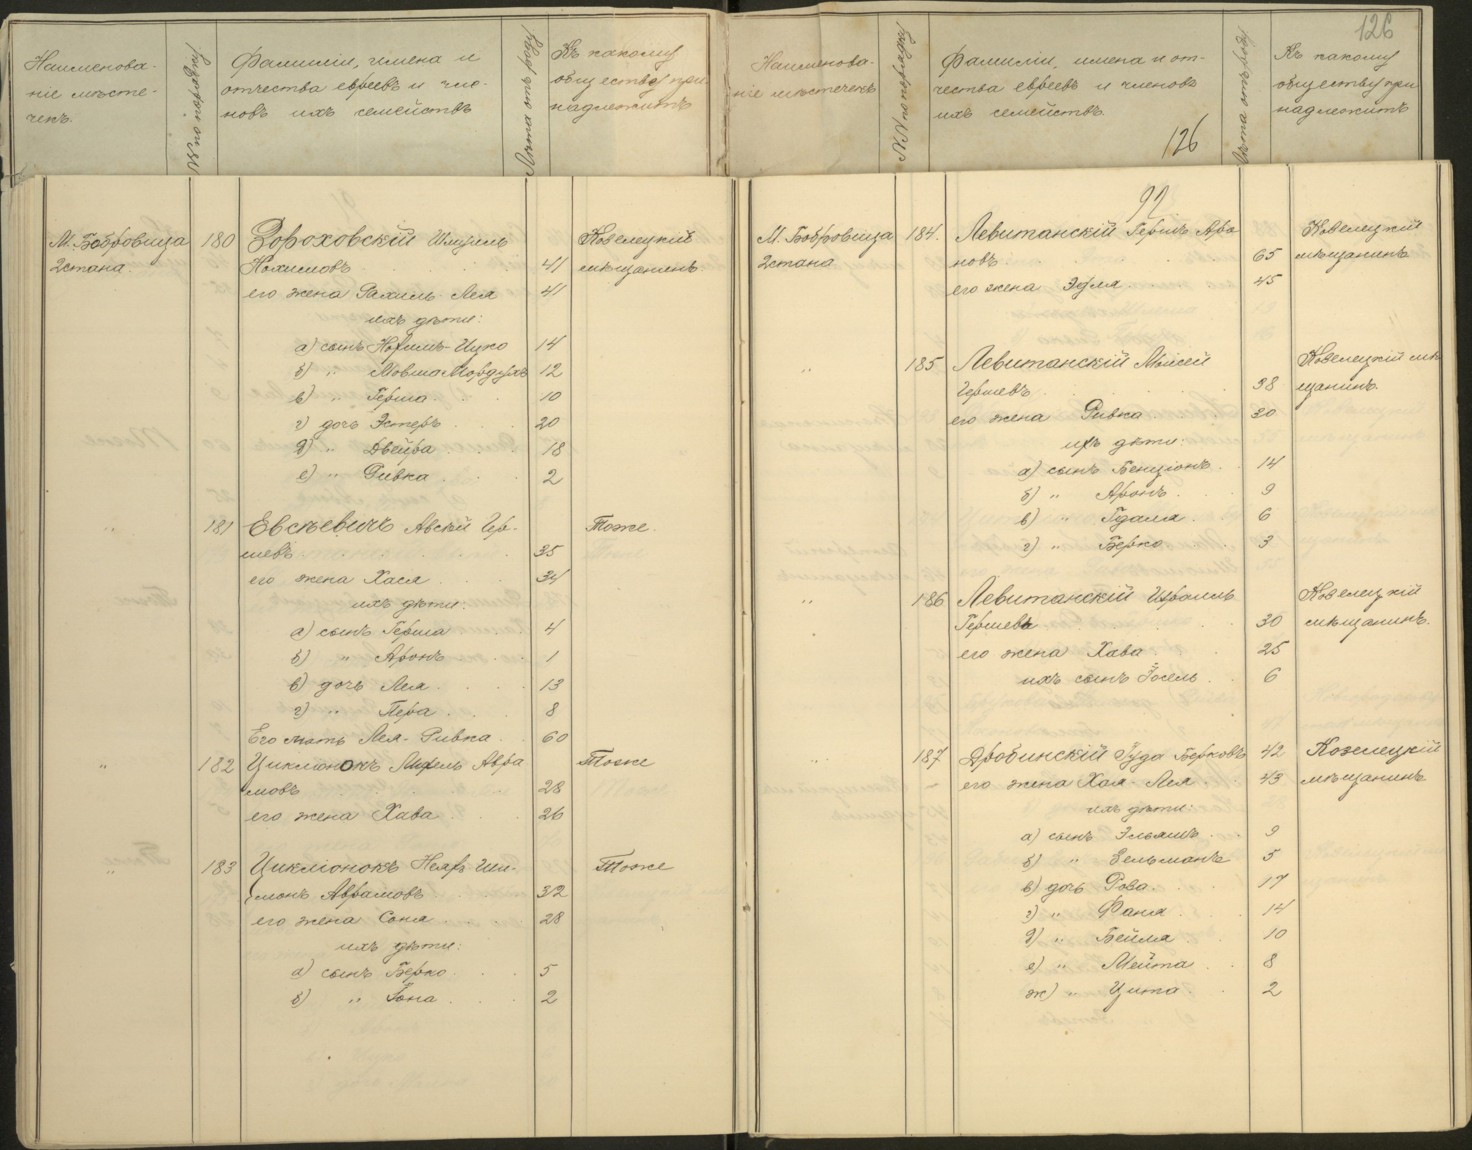 126
Наименова-
ніе мѣсте-
чекъ.
№ по порядку
Фамиліи, имена и
отчества евреевъ и чле-
новъ ихъ семействъ
Лѣта отъ роду
Къ какому
обществу при
надлежитъ
М. Бобровица
2 стана
180
Зороховскій Шмуиль
Нохимовъ
41
Козелецкій
мѣщанинъ
его жена Рахиль-Лея
41
ихъ дѣти:
а) сынъ Нохимъ-Ицко
14
б) " Мовша Мордухъ
12
в) " Герша
10
г) дочь Эстеръ
20
д) " Двейра
18
е) " Ривка
2
"
181
Евсѣевичъ Авсѣй Гер-
шевъ
35
Тоже
его жена Хася
34
ихъ дѣти:
а) сынъ Герша
4
б) " Аронъ
1
в) дочь Лея
13
г) " Пера
8
Его мать Лея-Ривка
60
"
182
Циклонокъ Авра
мовъ
28
Тоже
его жена Хава
26
"
183
Циклонокъ Шли-
монъ Аврамовъ
32
Тоже
его жена Соня
28
ихъ дѣти:
а) сынъ Берко
5
б) " Іона
2
Наименова-
ніе мѣстечекъ
№№ по порядку
Фамиліи, имена и от-
чества евреевъ и членовъ
ихъ семействъ.
126
Лѣта отъ роду
Къ какому
обществу при
надлежитъ
92
М. Бобровица
2 стана
184.
Левитанскій Гершъ Аро
новъ
65
Козелецкій
мѣщанинъ
его жена Эдля
45
"
185
Левитанскій Моисей
Гершевъ
38
Козелецкій мѣ
щанинъ.
его жена Ривка
30
ихъ дѣти:
а) сынъ Бенціонъ
14
б) " Аронъ
9
в) " Гдаля
6
г) " Берко
3
"
186
Левитанскій Израиль
Гершевъ
30
Козелецкій
мѣщанинъ.
его жена Хава
25
ихъ сынъ Іосель
6
"
187
Дробинскій Іуда Берковъ
42
Козелецкій
мѣщанинъ
его жена Хая-Лея
43
ихъ дѣти:
а) сынъ Эльяшъ
9
б) " Зельманъ
5
в) дочь Роза
17
г) " Фаня
14
д) " Бейля
10
е) " Мейта
8
ж) " Ципа
2